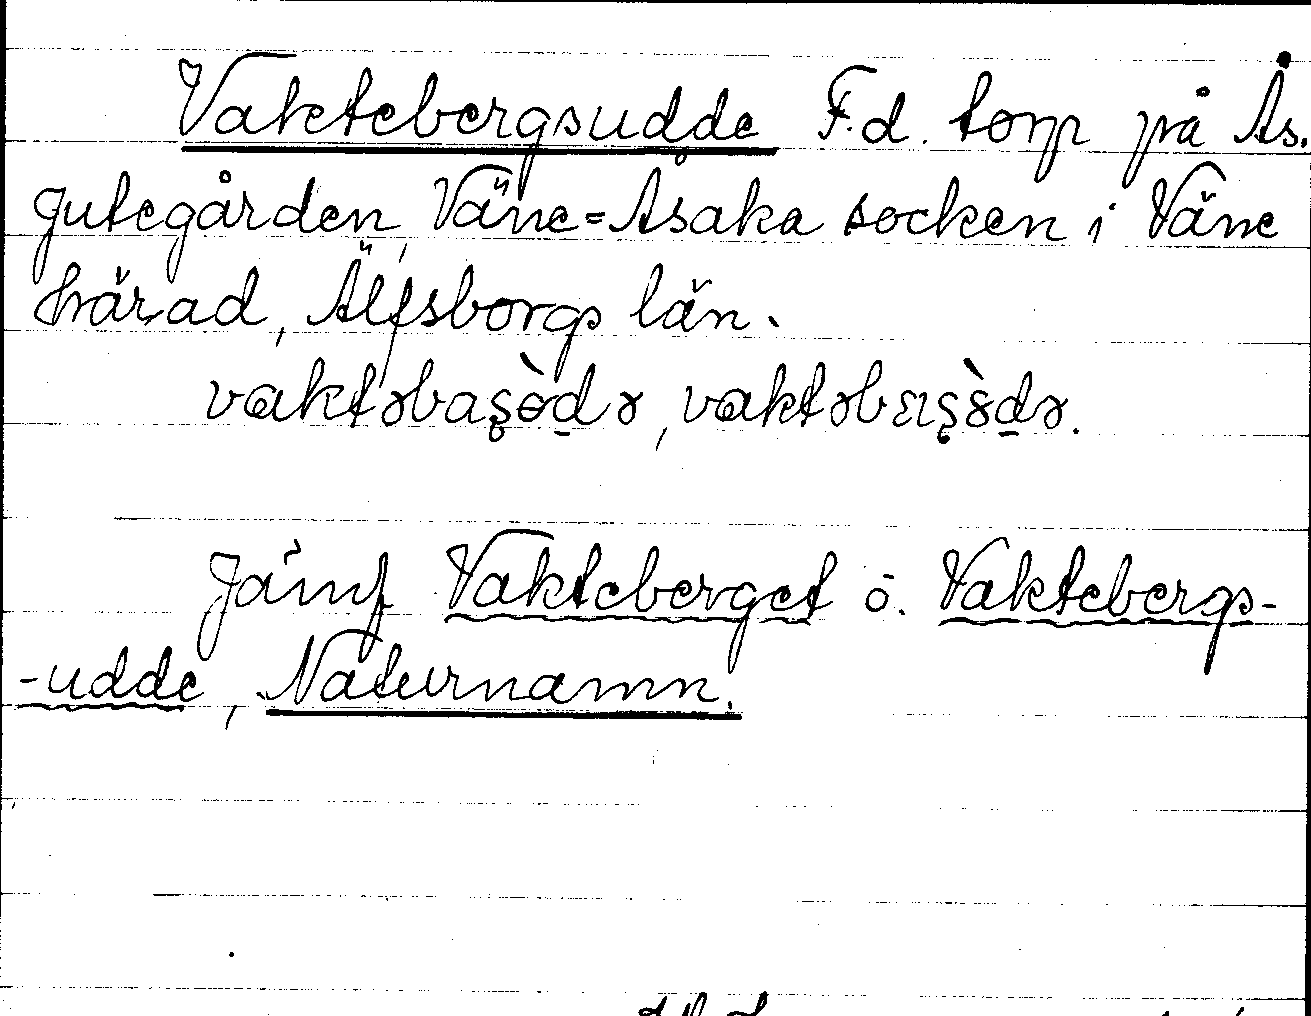 Vaktebergsudde F.d. torp på Ås.
Jutegården, Väne=Åsaka socken i Väne
härad, Älfsborgs län.
vaktəbaşòdə, vaktəbæşòdə.
Jämf Vakteberget o. Vaktebergs-
-udde, Naturnamn.